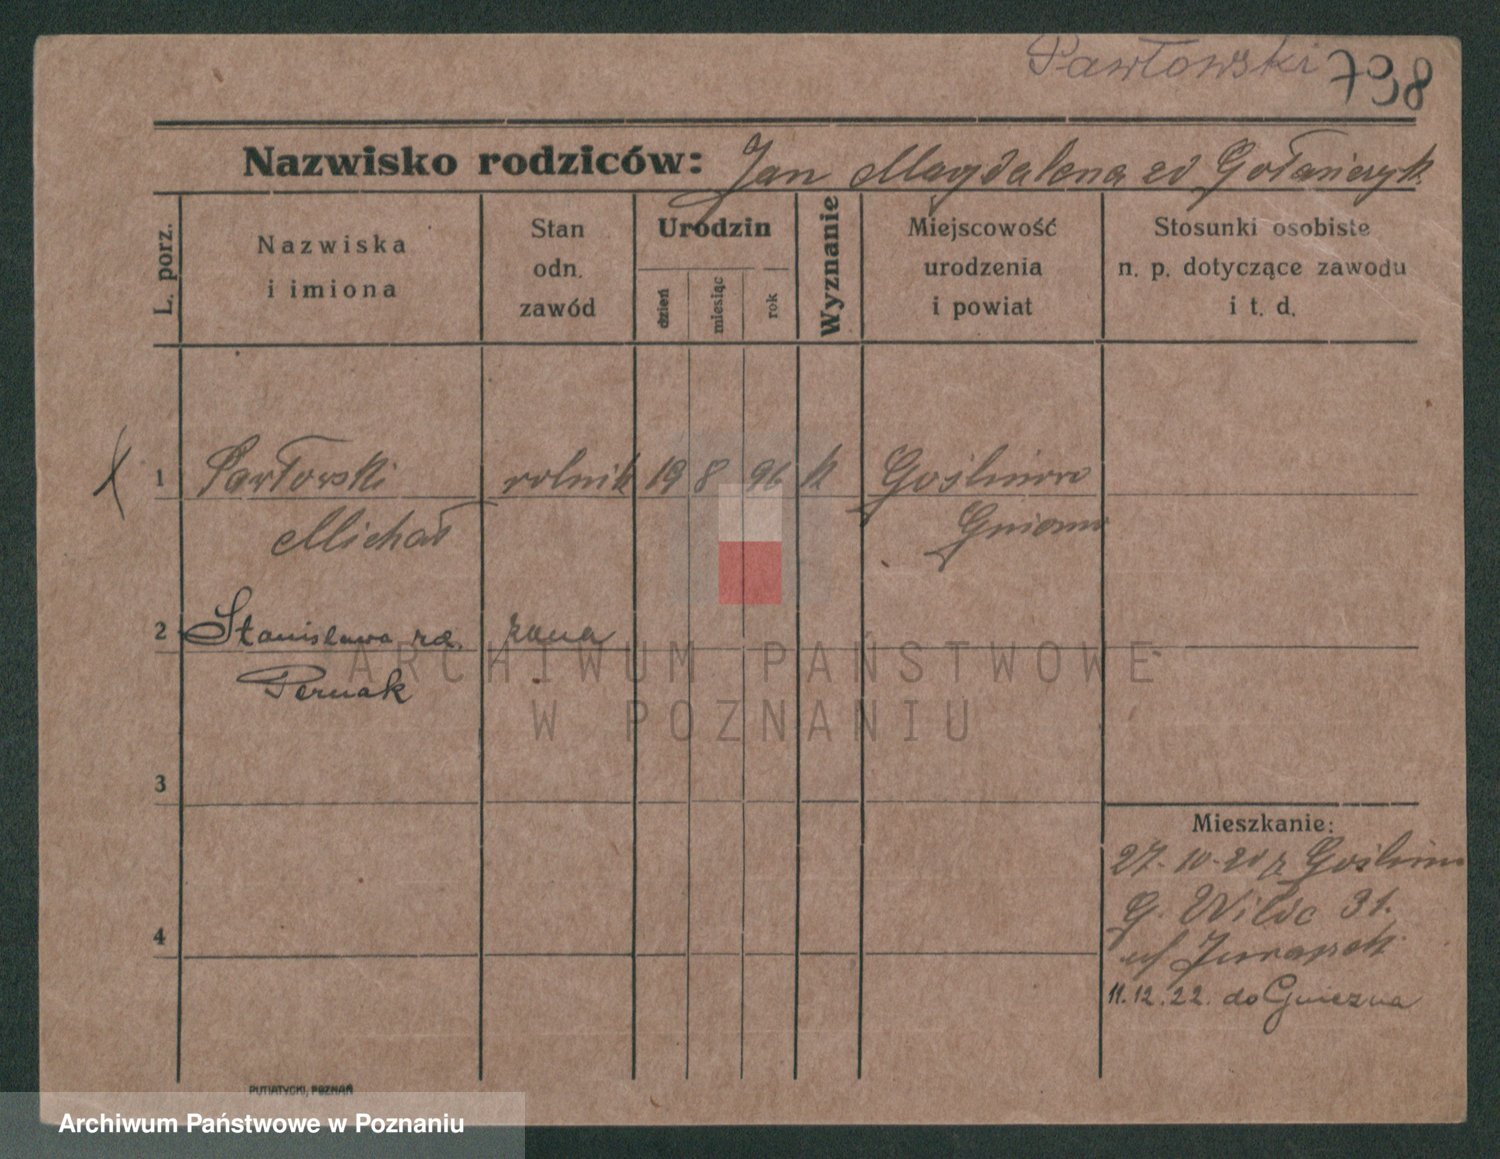 Pawłowski 798
Nazwisko rodziców: Jan Magdalena zd Gołańczyk
L. porz.
Nazwiska
i imiona
Stan
odn.
zawód
Urodzin
dzień
miesiąc
rok
Wyznanie
Miejscowość
urodzenia
i powiat
Stosunki osobiste
n. p. dotyczące zawodu
i t. d.
1 Pawłowski rolnik 19 8 96 k
Michał
2 Stanisława rd. żona
Pernak
3
4
Mieszkanie:
27-10-21 z
G. Wilde 31.
11.12.22. do Gniezna
PUTIATYCKI, POZNAŃ
ARCHIWUM PAŃSTWOWE
W POZNANIU
Archiwum Państwowe w Poznaniu